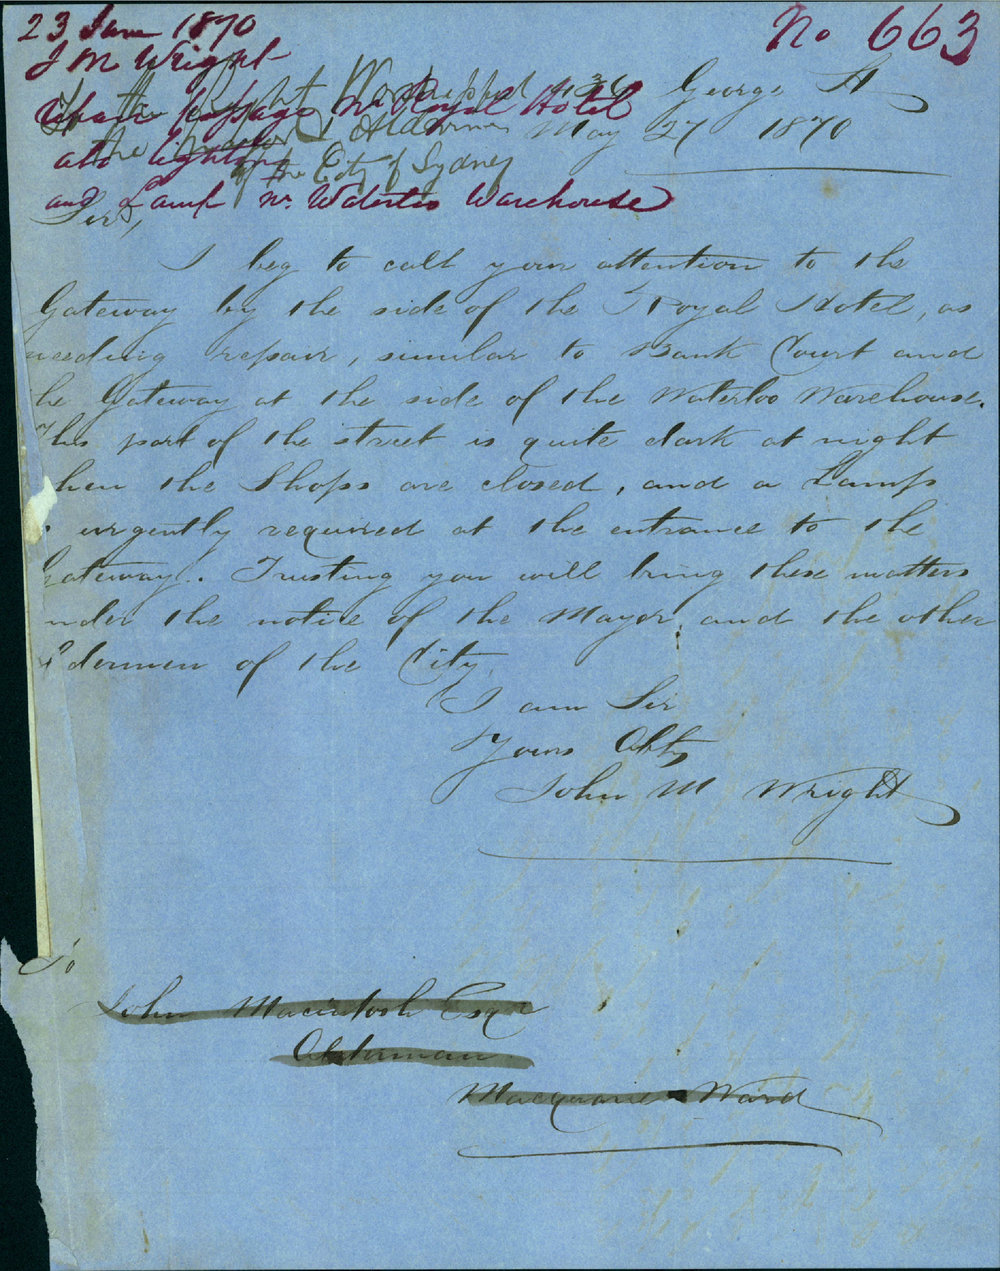 23 June 1870
No 663
J M Wright
repair passage nr Royal Hotel
also lighting
and Lamp nr. Waterloo Warehouse
To the Right Worshipful
the Mayor & Aldermen
of the City of Sydney
436 George St
May 27 1870
Sirs,
I beg to call your attention to the
Gateway by the side of the Royal Hotel, as
needing repair, similar to Bank Court and
he Gateway at the side of the Waterloo Warehouse.
This part of the street is quite dark at night
hen the Shops are closed, and a Lamp
urgently required at the entrance to the
Gateway. Trusting you will bring these matters
nder the notice of the Mayor, and the other
ldermen of the City.
I am Sir
Yours Obtly
John M Wright
To
John Macintosh Esqre
Alderman
Macquarie Ward